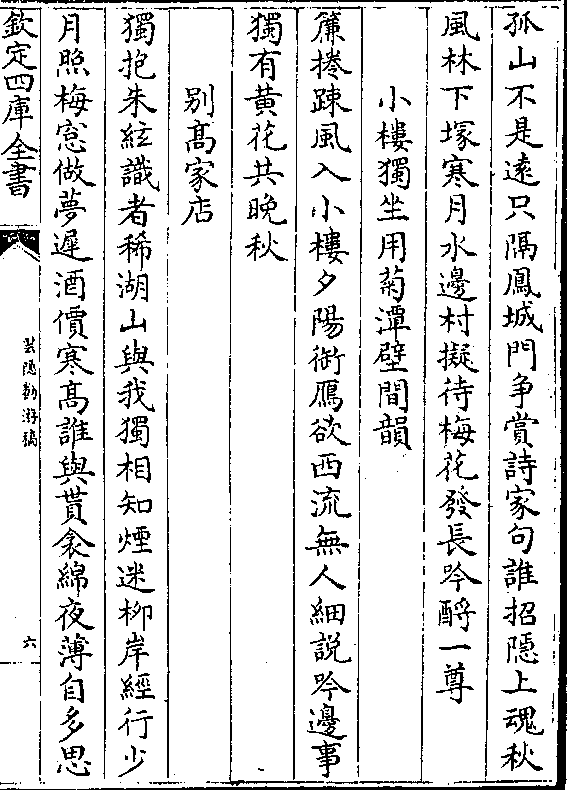 孤山不是遠只隔鳳城門争賞詩家句誰招隠上魂秋
風林下塚寒月水邊村擬待梅花發長吟酹一尊
小樓獨坐用菊潭壁間韻
簾捲踈風入小樓夕陽銜鴈欲西流無人細説吟邊事
獨有黄花共晚秋
别髙家店
獨抱朱絃識者稀湖山與我獨相知煙迷柳岸經行少
月照梅窓做夢遲酒價寒髙誰與貰衾綿夜薄自多思
欽定四庫全書
芸隠勌游稿
六